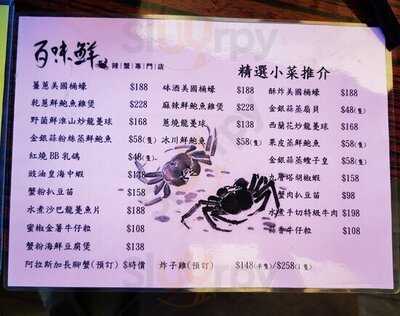 百味鮮
辣蟹專門店
精選小菜推介
薑蔥美國桶蠔 $188
乾蔥鮮鮑魚雞煲 $228
野菌鮮淮山炒龍躉球 $168
金銀蒜粉絲蒸鮮鮑魚 $58(隻)
紅燒BB乳鴿 $48(隻)
豉油皇海中蝦
蟹粉扒豆苗 $158
水煮沙巴龍躉魚片 $188
蜜椒金薯牛仔粒 $108
蟹粉海鮮豆腐煲 $138
阿拉斯加長腳蟹(預訂) $時價
砵酒美國桶蠔 $188
麻辣鮮鮑魚雞煲 $228
蔥燒龍躉球 $138
冰川鮮鮑魚 $58(隻)
炸子雞(預訂) $148(半隻)/$258(1隻)
酥炸美國桶蠔 $188
金銀蒜蒸扇貝 $48(隻)
西蘭花炒龍躉球 $168
果皮蒸鮮鮑魚 $58(隻)
金銀蒜蒸蟶子皇 $58(隻)
九層塔胡椒蝦 $158
蟹肉扒豆苗 $98
水煮手切特級牛肉 $198
蒜香牛仔粒 $108